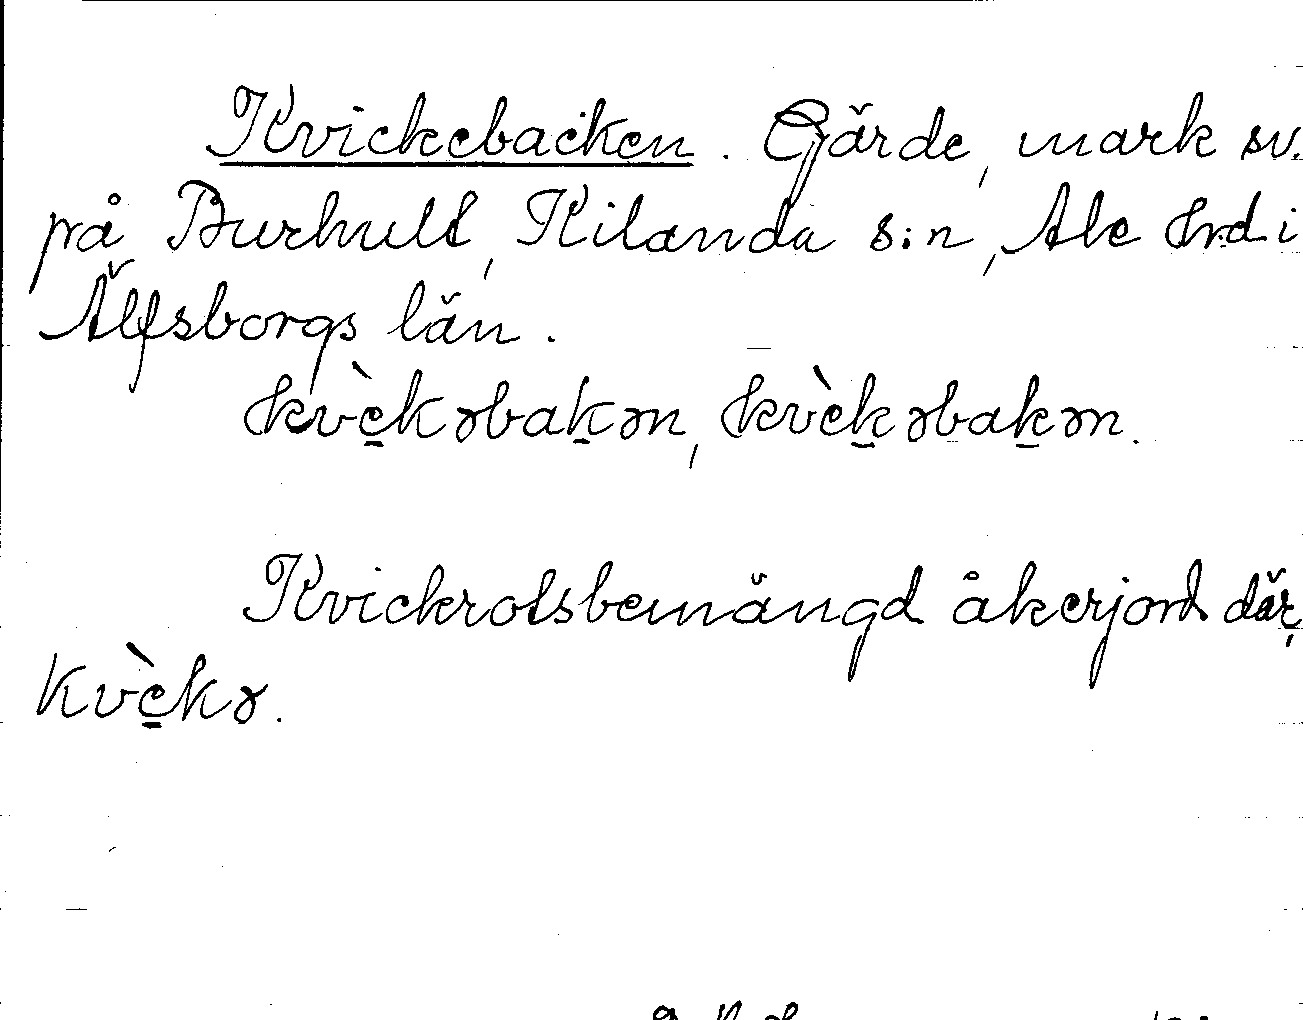 Kvickebacken. Gärde, mark sv.
på Burhult, Kilanda s:n, Ale hrd i
Älfsborgs län.
kvèkəbakən, kvèkəbakən.
Kvickrotsbemängd åkerjord där,
kvèkə.